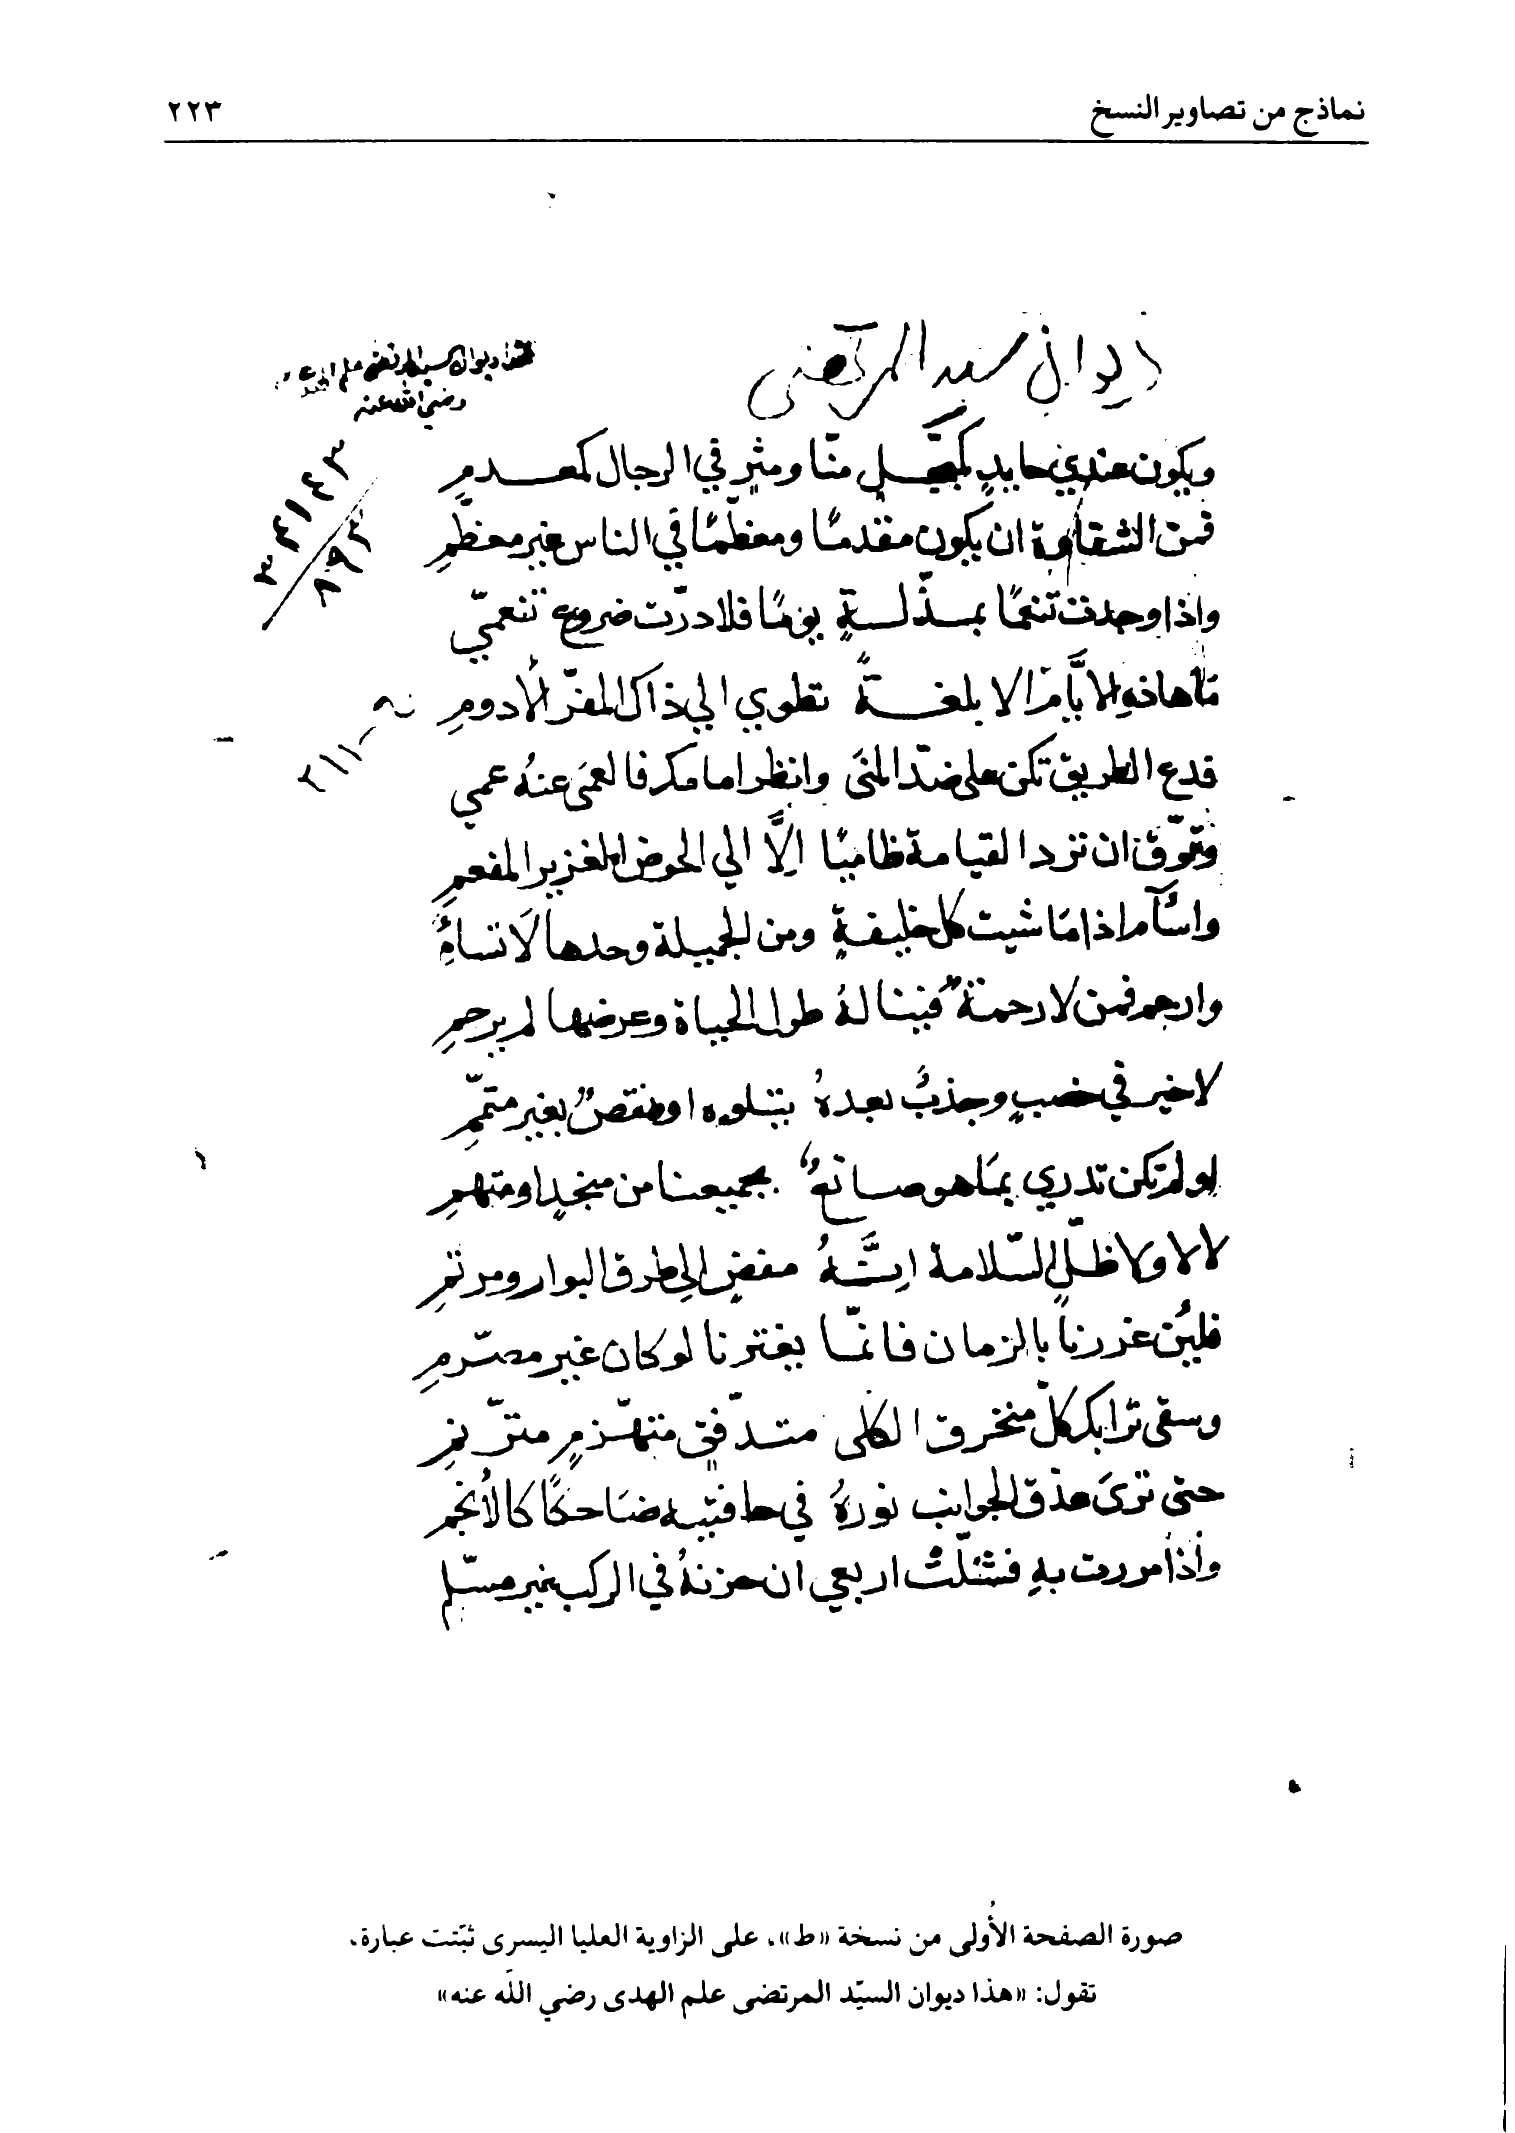 نماذج من تصاوير النسخ ٢٢٣
ديوان سيد المرتضى
هذا ديوان السيد المرتضى علم الهدى
رضي الله عنه
٣٤١٤٣
٨٩٣
٢١١
ويكون عندي حايدٍ كمبخّلٍ منّا ومثرٍ في الرجال كمعدمِ
فمن الشقاوة ان يكون مقدمًا ومعظّمًا في الناس غير معظّمِ
واذا وجدت تنعمًا بمذلةٍ يومًا فلا درّت ضروع تنعمّي
ما هاذه الايّام الا بلغةً تطوي الي ذاك المقرّ الأدومِ
فدع الطريق تكن على ضدّ المنَى وانظر امامكم فالعمَى عنهُ عمي
وتوّق ان ترد القيامة ظاميًا الاَّ الي الحوض الغزير المفعمِ
واسأم اذا مَا شيت كل خليفةٍ ومن الجميلة وحدها لاَ تسأمِ
وارحم فمن لا رحمة فينا لهُ طول الحياة وعرضها لم يرحمِ
لا خير في خصبٍ وجذبٌ بعدهُ يتلوه او نقصٌ بغير متمّمِ
لو لم تكن تدري بمَا هو صانعٌ بجميعنا من منجدٍ او متهمِ
لا لا ولا ظلّ السّلامة انّهُ مفضٍ الى طرق البوار ومرتمِ
فلين غررنا بالزمان فانمّا يغترنا لو كان غير مصرّمِ
وسقى ترابكم كلّ منخرق الكلى متدفّقٍ متهزّمٍ مترّنمِ
حتى ترَى عذق الجوانب نورهُ في حافتيه ضَاحكًا كالأنجم
وأذا مررت بهِ فشلّتْ اربعي ان حزنهُ في الركب غير مسلّم
صورة الصفحة الأُولى من نسخة «ط»، على الزاوية العليا اليسرى ثبّتت عبارة،
تقول: «هذا ديوان السيّد المرتضى علم الهدى رضي اللّه عنه»